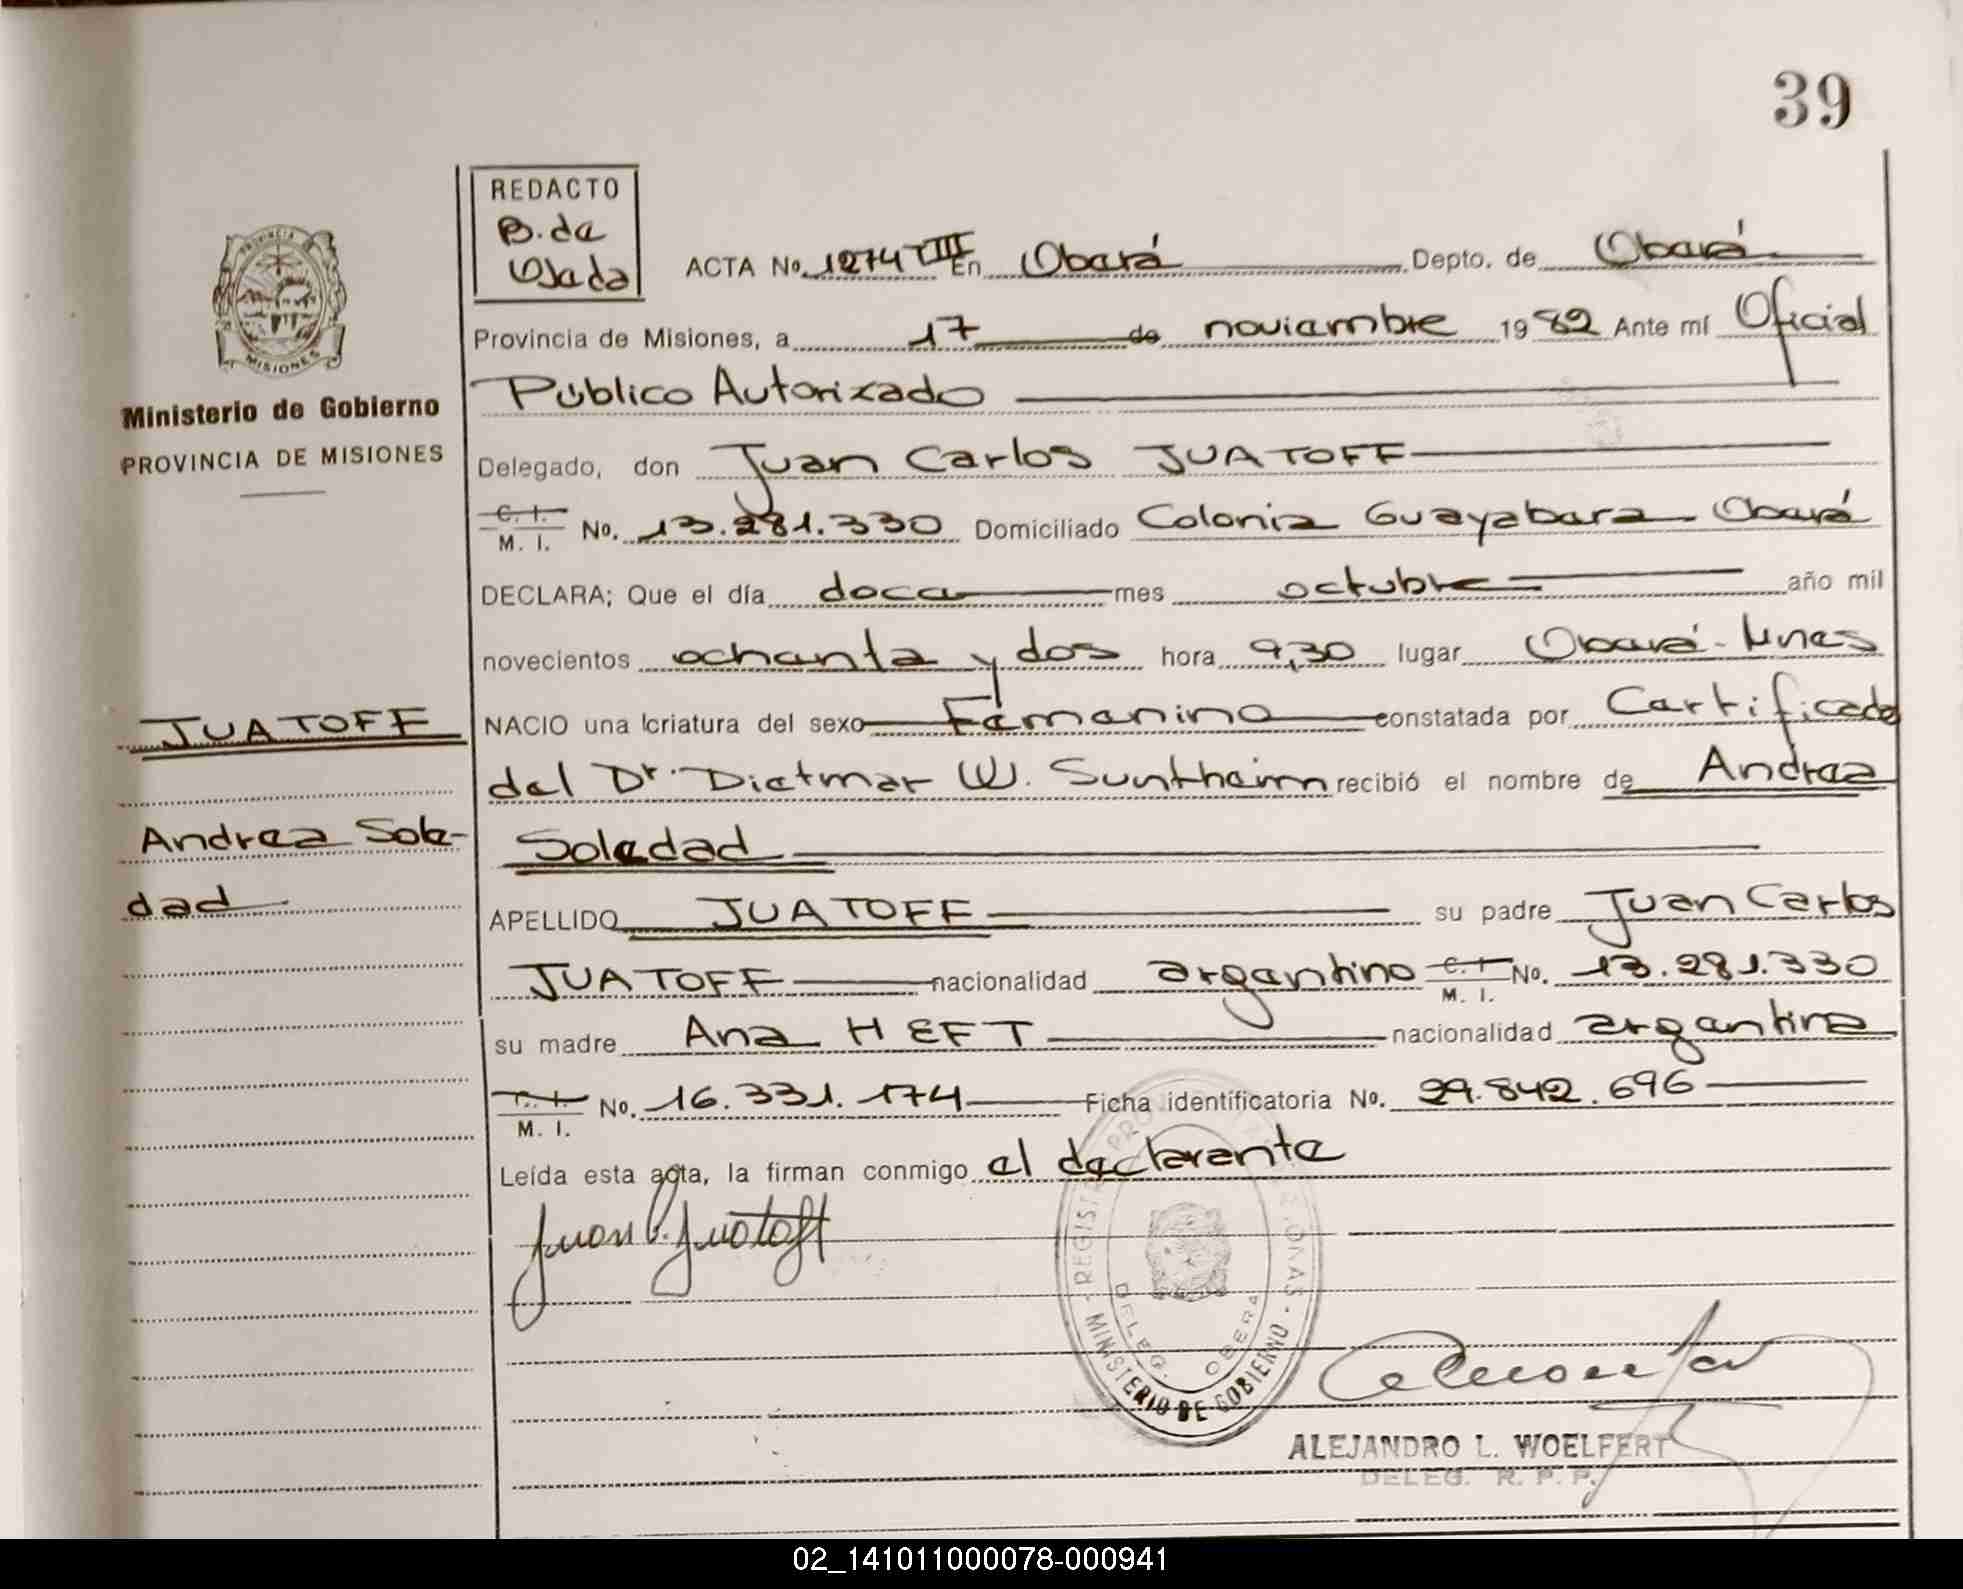 39
REDACTO
B. de
Ojeda
ACTA No. 1274 TIII En Oberá Depto. de Oberá
PROVINCIA
MISIONES
Provincia de Misiones, a 17 de noviembre 1982 Ante mí Oficial
Ministerio de Gobierno
Público Autorizado
PROVINCIA DE MISIONES
Delegado, don Juan Carlos JUATOFF
C. I.
M. I. No. 13.281.330 Domiciliado Colonia Guayabera Oberá
DECLARA; Que el día doce mes octubre año mil
novecientos ochenta y dos hora 9,30 lugar Oberá - Mnes
JUATOFF
NACIO una criatura del sexo Femenino constatada por Certificado
del Dr. Dietmar W. Suntheim recibió el nombre de Andrea
Andrea Sole-
Soledad
dad
APELLIDO JUATOFF su padre Juan Carlos
JUATOFF nacionalidad argentino C. I. M. I. No. 13.281.330
su madre Ana HEFT nacionalidad argentina
M. I. No. 16.331.174 Ficha identificatoria No. 29.842.696
Leída esta acta, la firman conmigo el declarante
Juan C. Juatoff
DELEG. OBERA
MINISTERIO DE GOBIERNO
ALEJANDRO L. WOELFERT
DELEG. R. P. P.
02_141011000078-000941